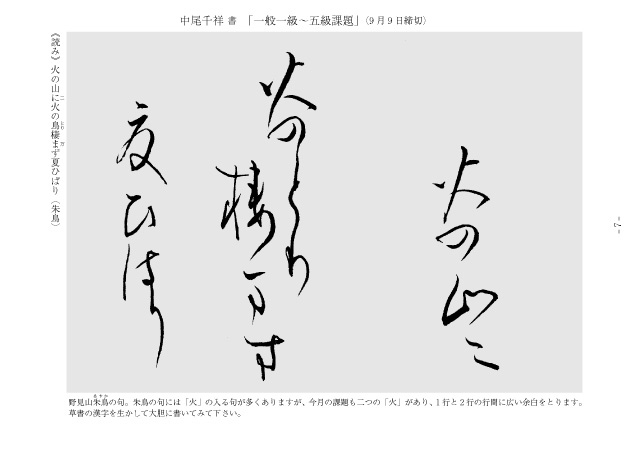 中尾千祥 書 「一般一級〜五級課題」(9月9日締切)
《読み》火の山に火の鳥棲まず夏ひばり（朱鳥）
ニ
とり
万
火の山ニ
火のとり
棲万す
夏ひはり
- 7 -
あすか
野見山朱鳥の句。朱鳥の句には「火」の入る句が多くありますが、今月の課題も二つの「火」があり、1行と2行の行間に広い余白をとります。
草書の漢字を生かして大胆に書いてみて下さい。